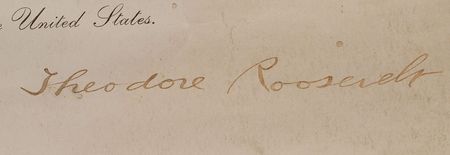 United States.
Theodore Roosevelt